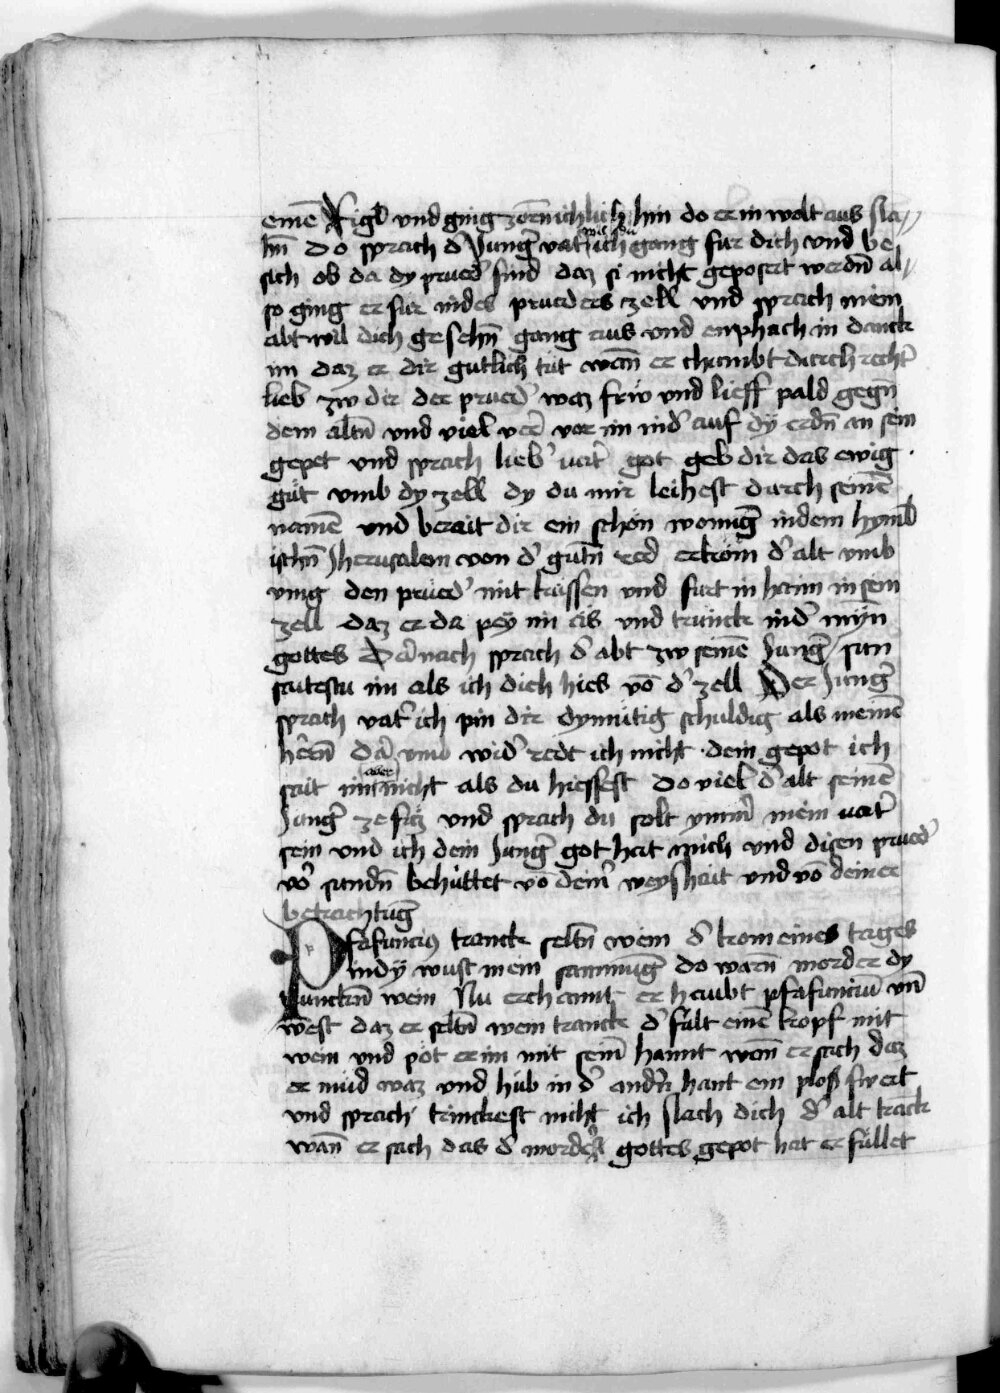 einē Rigl und ging zornichlich hin do er in wolt aus sla„
hn̄ Do sprach d' Jung' vat' wis du ich gang fur dich und be
sich ob da dy prued' sind daz si nicht geposert werdn̄ al„
so ging er fur indes prueders zell und sprach mein
abt wil dich gesehn̄ gang aus und enphach in danck
im daz er dir gutlich tut wān er chumbt durch recht'
lieb zw dir der prued' waz fro und lieff pald gegn̄
dem altn̄ und viel ver' vor im nid' auf dy erdn̄ an sein
gepet und sprach lieb' vat' got geb dir das ewig
gůt umb dy zell dy du mir leihest durch seinē
namē und berait dir ein schon wonūg indem hymel
ischn̄ Jherusalem von d' gutn̄ red erkom d' alt umb
ving den prued' mit kussen und furt in haim in sein
zell daz er da pey im as und trunck in d' mynn
gottes Darnach sprach d' abt zw seinē Jung' / san
saitestu im als ich dich hies vō d' zell Der Jung'
sprach vat' ich pin dir dymutig schuldig als meinē
herrn̄ dar umb wid' redt ich nicht dein gepot ich
sait im aber nicht als du hiessest Do viel d' alt seinē
Jung' ze fuz und sprach du solt ymm' mein vat'
sein und ich dein Jung' got hat mich und disen prued'
vō sundn̄ behuttet vō dein' weyshait und vō deiner
betrachtūg
Pfafuncius tranck seltn̄ wein d' kom eines tages
in dy wust in ein samnūg do warn̄ morder dy
trunckn̄ wein Nu erchannt er haubt pfafunciū un̄
west daz er seltn̄ wein tranck d' fult einē kopf mit
wein und pot er im mit sein' hannt wān er sach daz
er mud waz und hub in d' andn̄ hant ein plos swert
und sprach trinckest nicht ich slach dich d' alt tranck
wān er sach das d' morder gottes gepot hat erfullet